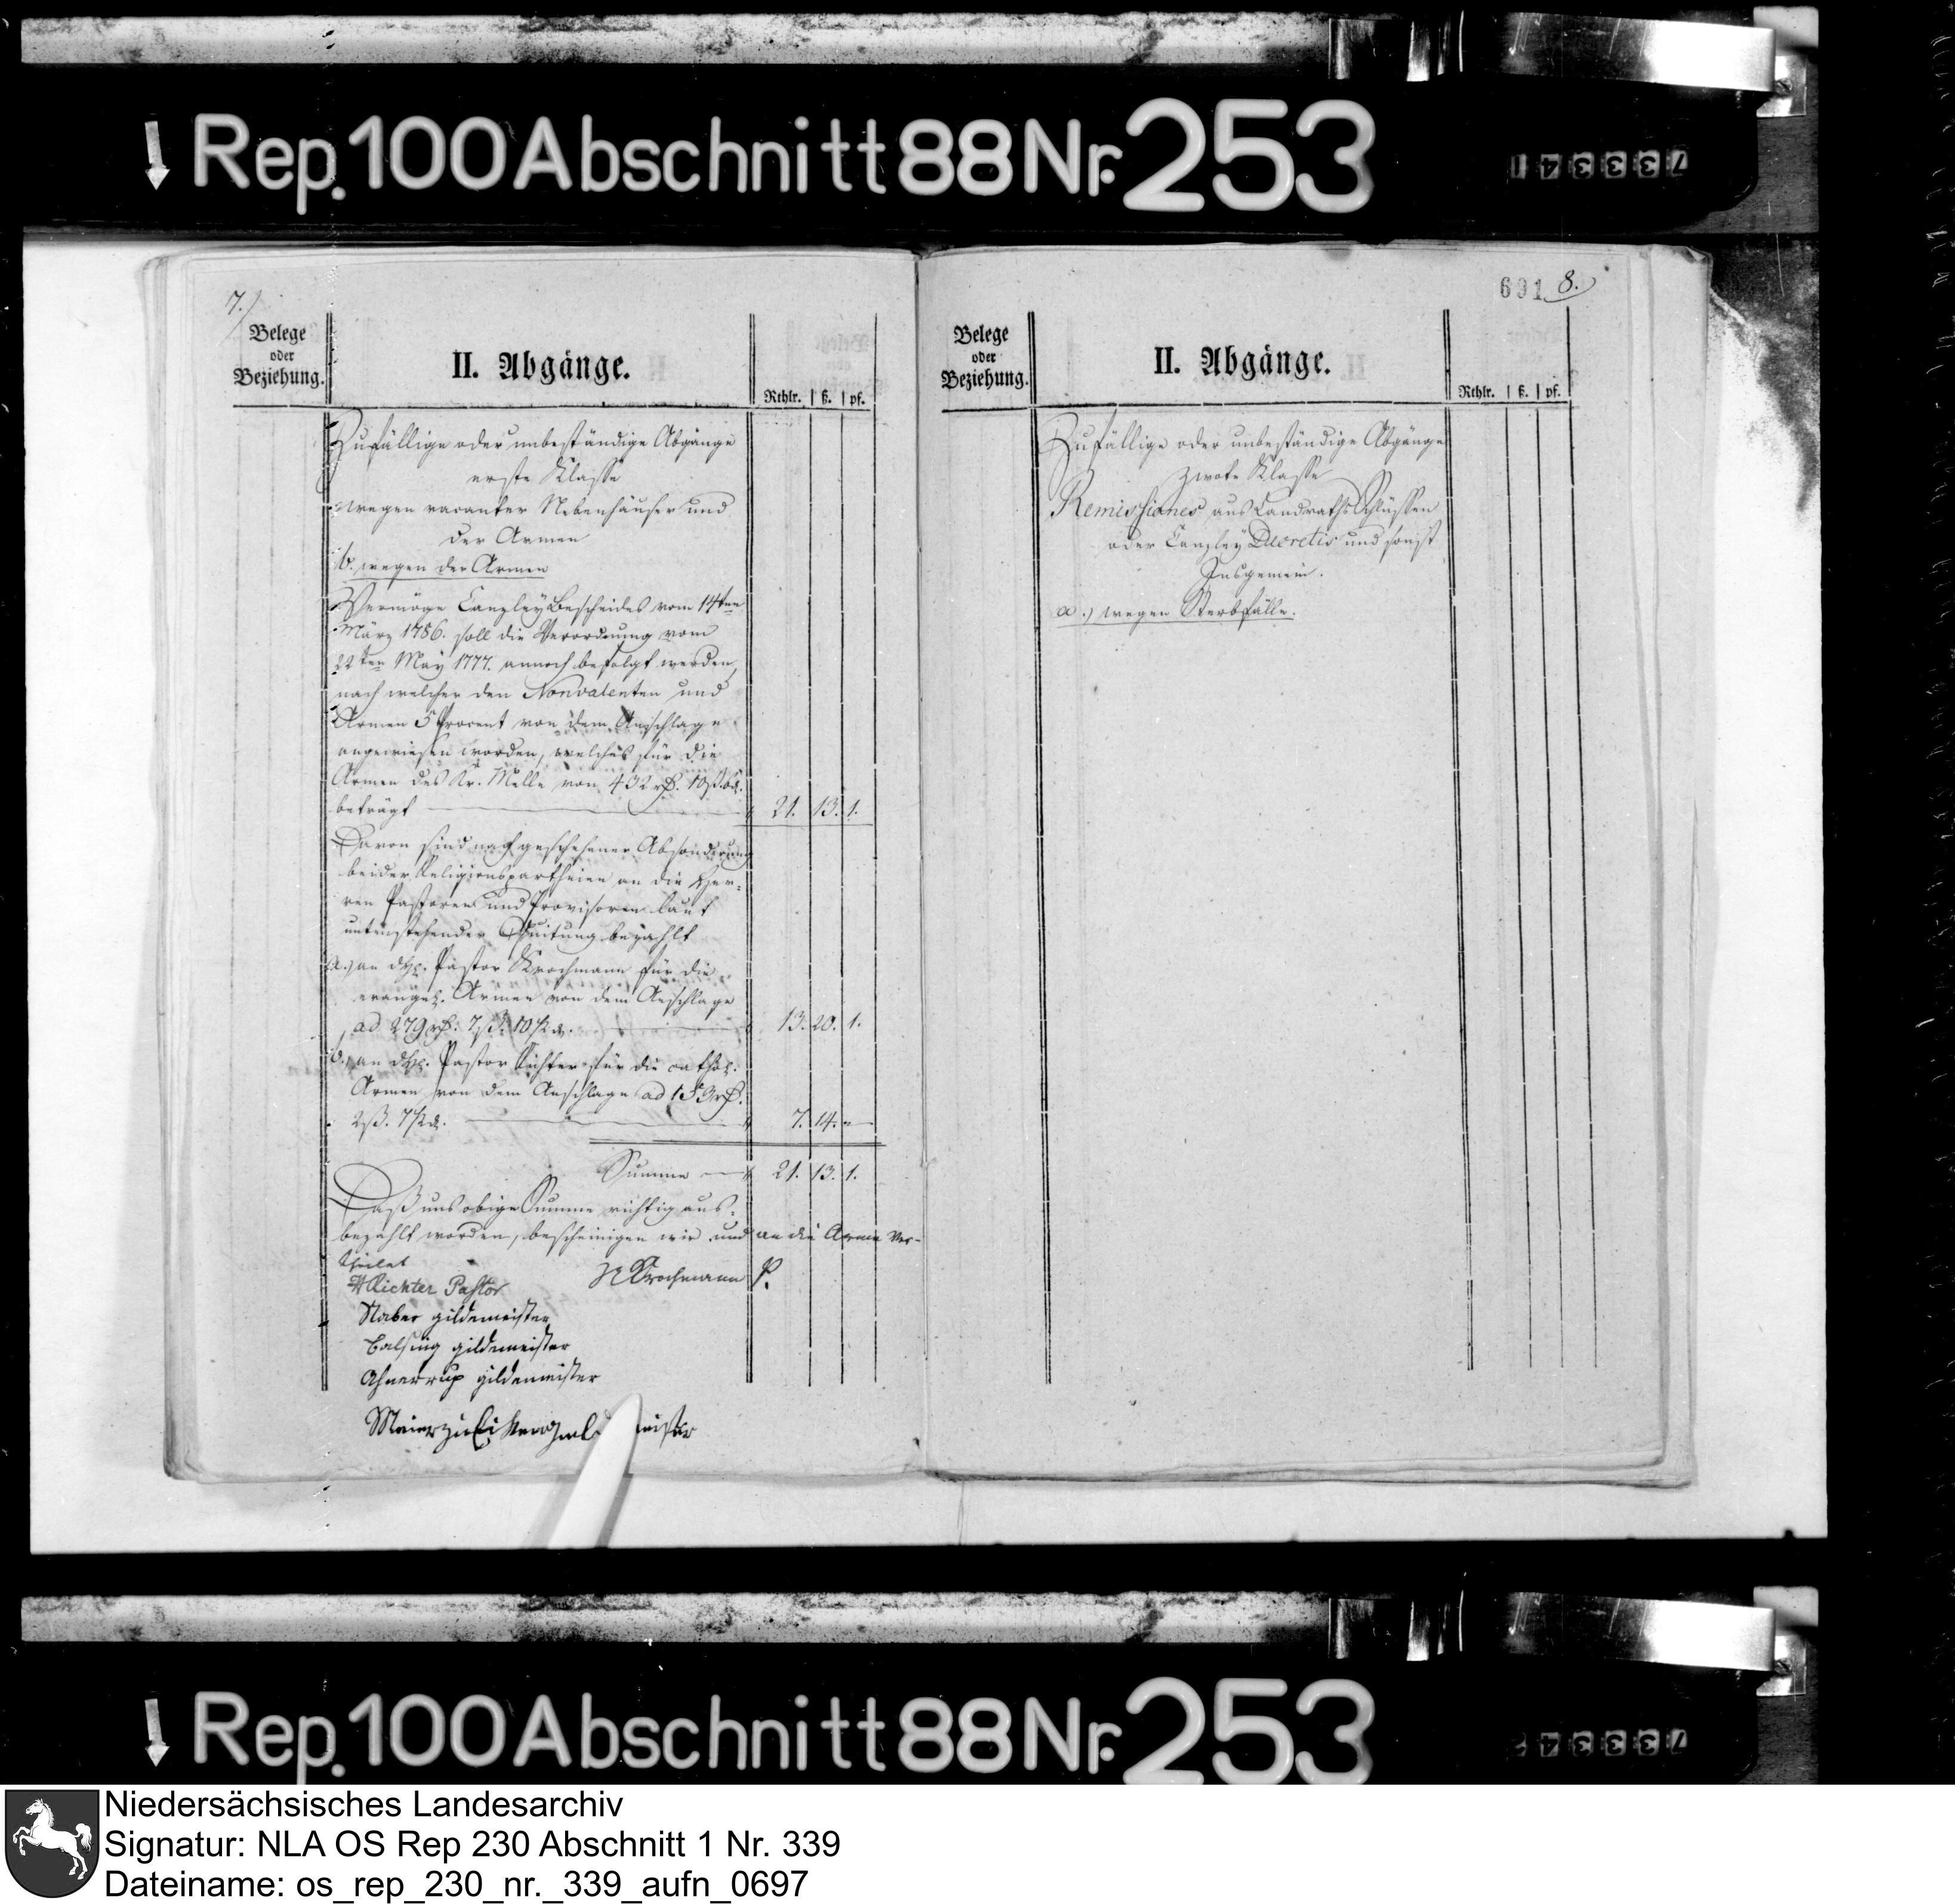 Rep. 100 Abschnitt 88 Nr. 253
733341
7.)
Belege
oder
Beziehung.
II. Abgänge.
Rthlr. ß. pf.
Zufällige oder unbeständige Abgänge
erste Klasse
wegen vacanter Nebenhäuser und
der Armen
b. wegen der Armen
Vermöge Canzley Bescheides vom 14ten
März 1786. soll die Verordnung vom
22ten May 1777. annoch befolgt werden,
nach welcher den Nonvalenten und
Armen 5 Procent von dem Anschlage
angewiesen worden, welches für die
Armen des Kr. Melle von 432 rth. 10 ß.
beträgt 21. 13. 1.
Davon sind nach geschehener Absonderung
beider Religionspartheien an die Her-
ren Pastoren und Provisoren laut
untenstehender Quitung bezahlt
a.) an dH. Pastor Krochmann für die
evangel. Armen von dem Anschlage
ad 279 rth. 7 ß. 10 1/2 d. 13. 20. 1.
b.) an dH. Pastor Richter für die cathol.
Armen von dem Anschlage ad 153 rth.
2 ß. 7 1/2 d. 7. 14. -
Summe 21. 13. 1.
Daß uns obige Summe richtig aus-
bezahlt worden, bescheinigen wir und an die Arme ver-
theilet
Richter Pastor
Krochmann P.
Naber gildemeister
gildemeister
Ahnerrup gildemeister
Meier zu
691 8.
Belege
oder
Beziehung.
II. Abgänge.
Rthlr. ß. pf.
Zufällige oder unbeständige Abgänge
zwote Klasse
Remissiones aus Landraths Schlüssen
oder Canzley Decretis und sonst
Insgemein.
a.) wegen Sterbfälle.
Rep. 100 Abschnitt 88 Nr. 253
Niedersächsisches Landesarchiv
Signatur: NLA OS Rep 230 Abschnitt 1 Nr. 339
Dateiname: os_rep_230_nr._339_aufn_0697